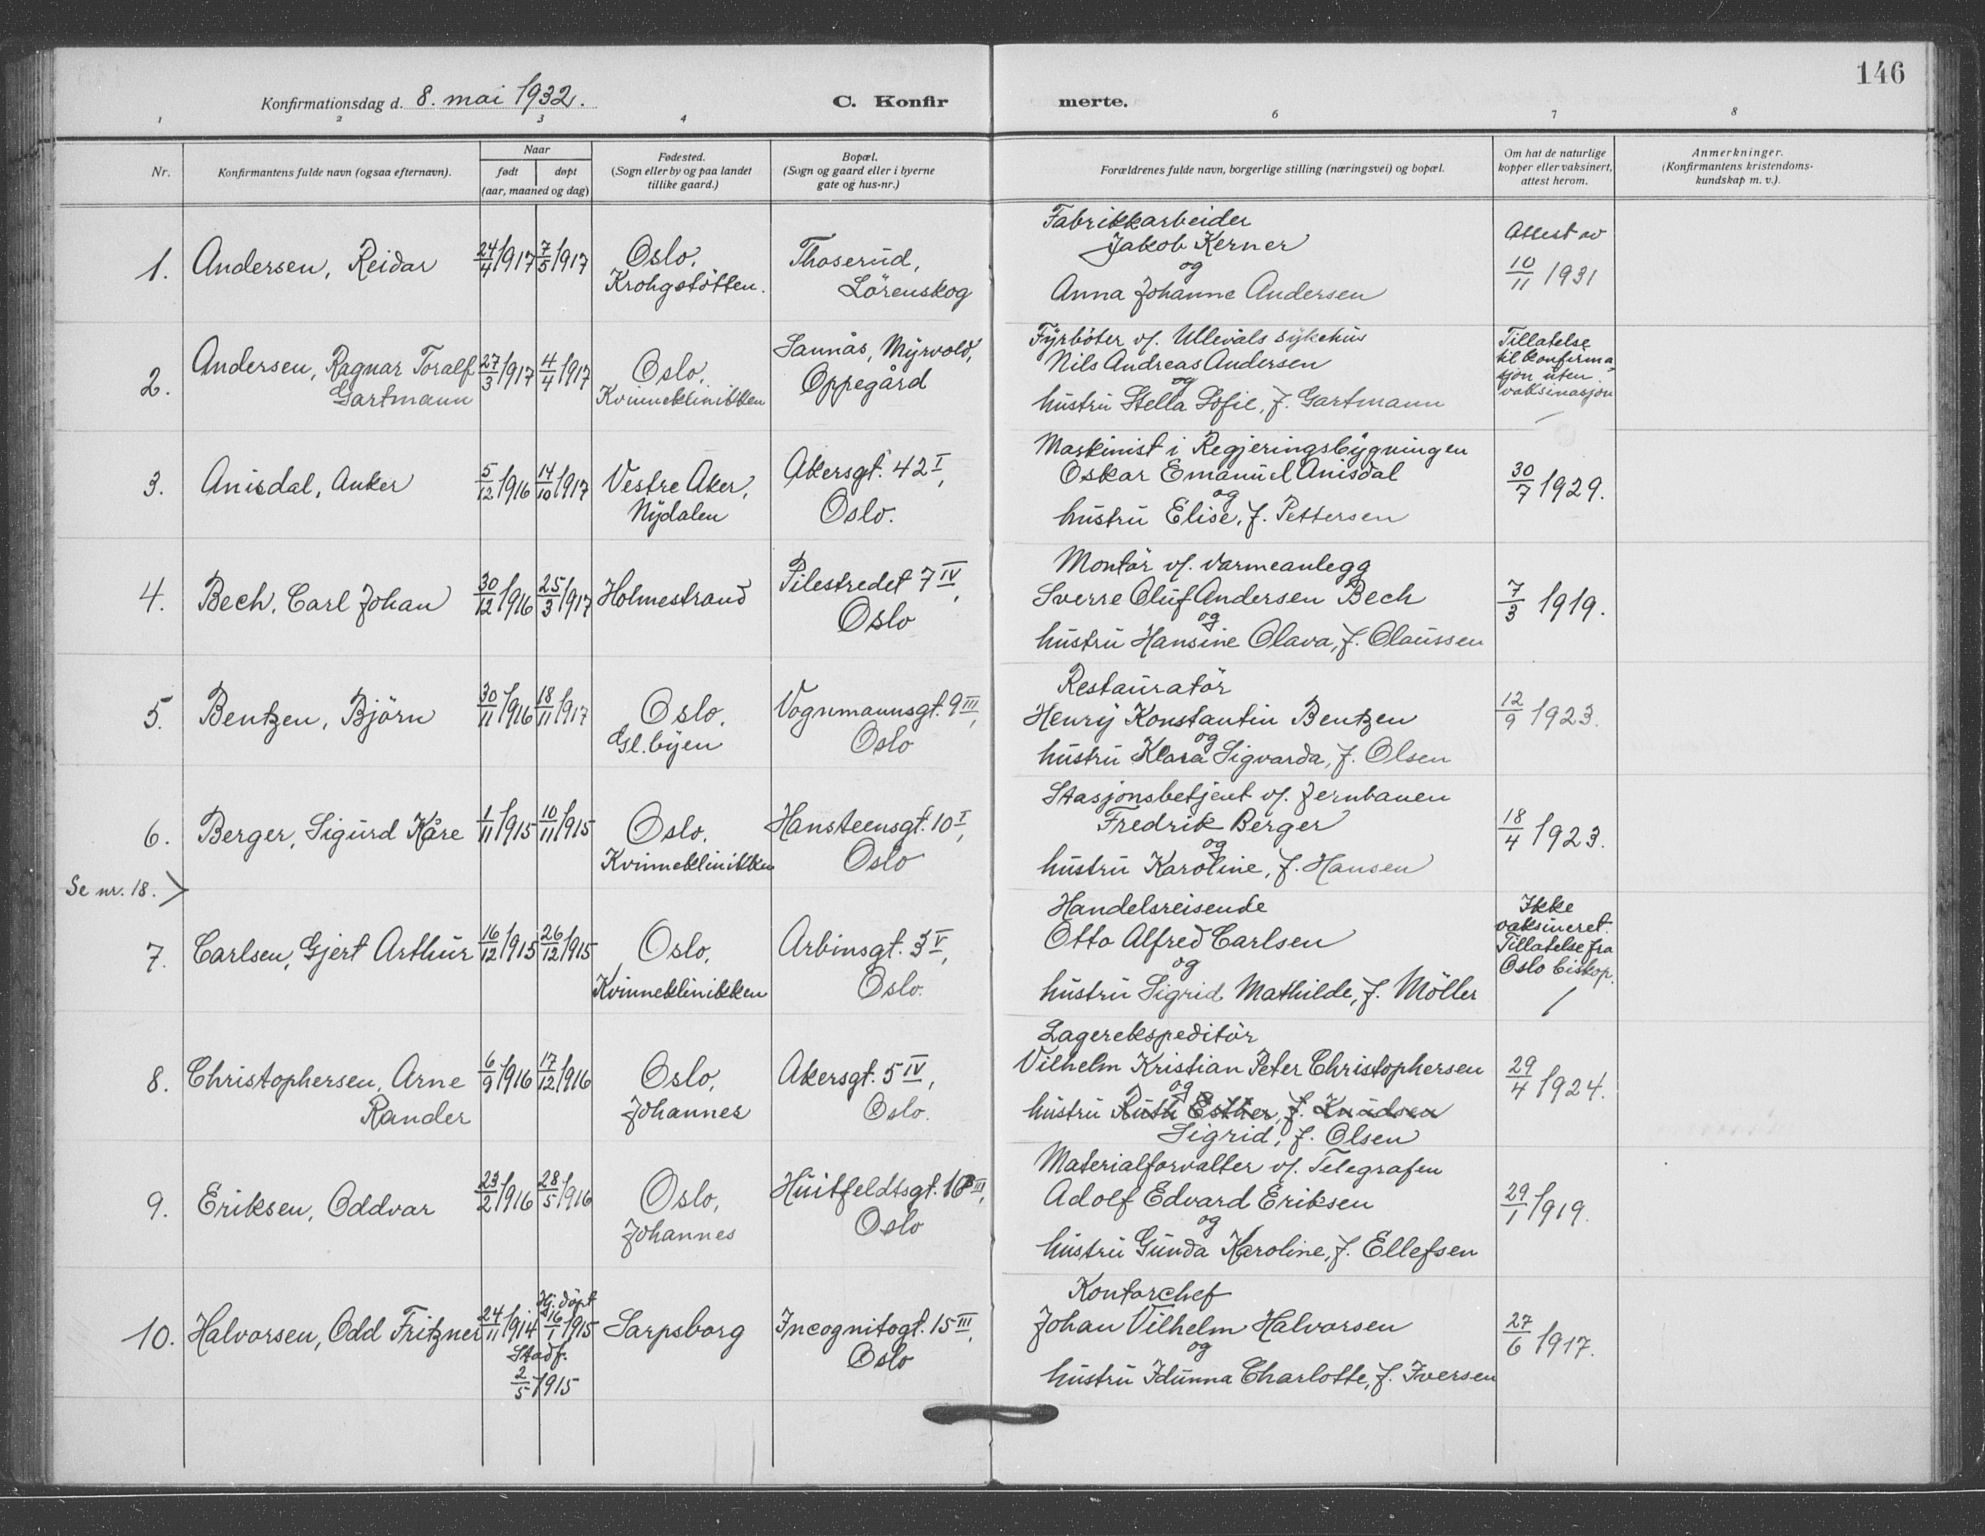 146
Konfirmationsdag d. 8. mai 1932.
C. Konfir merte.
1 2 3 4 6 7 8
Nr.
Konfirmantens fulde navn (ogsaa efternavn).
Naar
født døpt
(aar, maaned og dag)
Fødested.
(Sogn eller by og paa landet
tillike gaard.)
Bopæl.
(Sogn og gaard eller i byerne
gate og hus-nr.)
Forældrenes fulde navn, borgerlige stilling (næringsvei) og bopæl.
Om hat de naturlige
kopper eller vaksinert,
attest herom.
Anmerkninger.
(Konfirmantens kristendoms-
kundskap m. v.).
1. Andersen, Reidar
24/4 1917 7/5 1917
Oslo,
Krohgstötten.
Thoserud,
Lörenskog
Fabrikkarbeider
Jakob Kerner
og
Anna Johanne Andersen
Attest av
10/11 1931
2. Andersen, Ragnar Toralf
Gartmann
27/3 1917 4/4 1917
Oslo,
Kvinneklinikken
Sannås, Myrvold,
Oppegård
Fyrböter v/. Ullevåls sykehus
Nils Andreas Andersen
og
hustru Stella Sofie, f. Gartmann
Tillatelse
til konfirma-
sjon uten
vaksinasjon
3. Anisdal, Anker
5/12 1916 14/10 1917
Vestre Aker,
Nydalen
Akersgt. 42 I,
Oslo.
Maskinist i Regjeringsbygningen
Oskar Emanuel Anisdal
og
hustru Elise, f. Pettersen
30/7 1929.
4. Bech, Carl Johan
30/12 1916 25/3 1917
Holmestrand
Pilestredet 7 IV,
Oslo
Montör v/. varmeanlegg
Sverre Oluf Andersen Bech
og
hustru Hansine Olava, f. Claussen
7/3 1919.
5. Bentzen, Björn
30/11 1916 18/11 1917
Oslo,
Gl. byen
Vognmannsgt. 9 III,
Oslo
Restauratör
Henry Konstantin Bentzen
og
hustru Klara Sigvarda, f. Olsen
12/9 1923.
6. Berger, Sigurd Kåre
1/11 1915 10/11 1915
Oslo,
Kvinneklinikken
Hansteensgt. 10 I,
Oslo
Stasjonsbetjent v/. Jernbanen
Fredrik Berger
og
hustru Karoline, f. Hansen
18/4 1923.
Se nr. 18. >
7. Carlsen, Gjert Arthur
16/12 1915 26/12 1915
Oslo,
Kvinneklinikken
Arbinsgt. 3 V,
Oslo.
Handelsreisende
Otto Alfred Carlsen
og
hustru Sigrid Mathilde, f. Möller
Ikke
vaksineret.
Tillatelse fra
Oslo biskop.
8. Christophersen, Arne
Rander
6/9 1916 17/12 1916
Oslo,
Johannes
Akersgt. 5 IV,
Oslo.
Lagerekspeditör
Vilhelm Kristian Peter Christophersen
og
hustru Ruth Esther, f. Knudsen
Sigrid, f. Olsen
29/4 1924.
9. Eriksen, Oddvar
23/2 1916 28/5 1916
Oslo,
Johannes
Huitfeldtsgt. 10 III,
Oslo
Materialforvalter v/. Telegrafen
Adolf Edvard Eriksen
og
hustru Gunda Karoline, f. Ellefsen
29/1 1919.
10. Halvorsen, Odd Fritzner
24/11 1914 Hj. döpt
16/1 1915
Stadf.
2/5 1915
Sarpsborg
Incognitogt. 15 III,
Oslo
Kontorchef
Johan Vilhelm Halvorsen
og
hustru Idunna Charlotte, f. Iversen
27/6 1917.